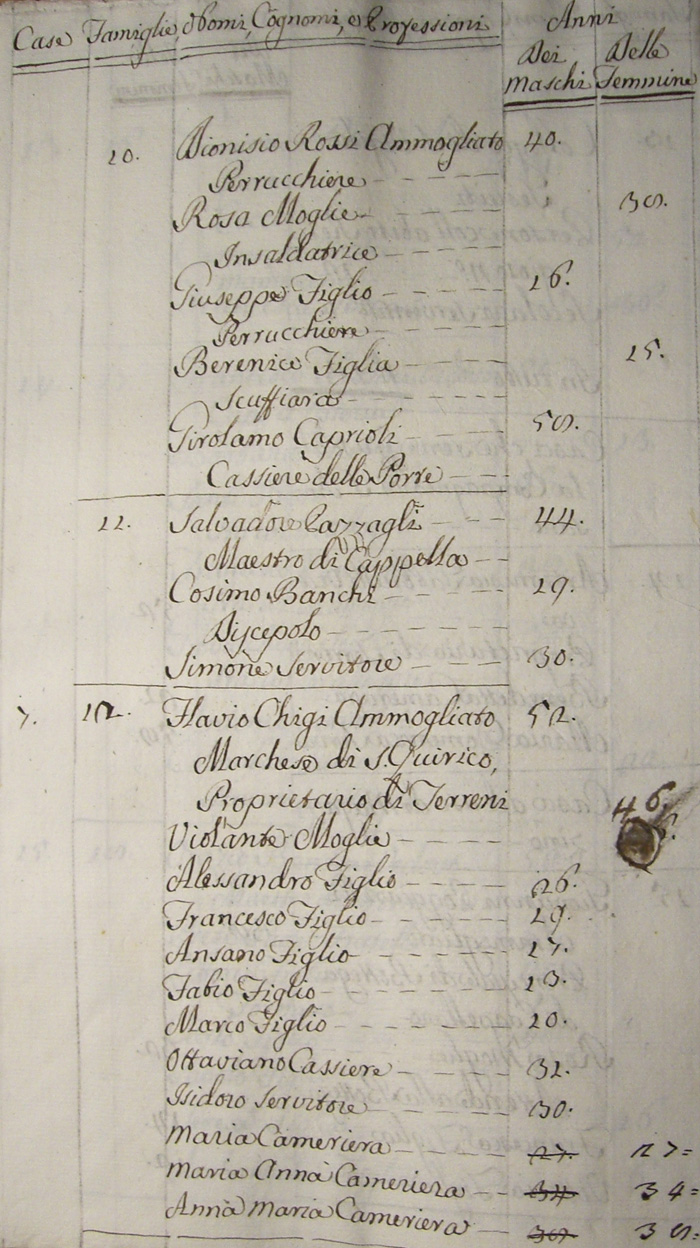 Case Famiglie, Nomi, Cognomi, e Professioni Anni
Dei Maschi Delle Femmine
10. Dionisio Rossi Ammogliato 40.
Perrucchiere
Rosa Moglie
Insaldatrice
Giuseppe Figlio 16.
Perrucchiere
Berenice Figlia 15.
Scuffiara
Girolamo Caprioli
Cassiere delle Porre
11. Salvadore Pazzagli 44.
Maestro di Cappella
Cosimo Banchi 19.
Dicepolo
Simone Servitore 30.
7. 12. Flavio Chigi Ammogliato 52.
Marchese di S. Quirico,
Proprietario di Terreni
Violante Moglie 46.
Alessandro Figlio 26.
Francesco Figlio 19.
Ansano Figlio 17.
Fabio Figlio 13.
Marco Figlio 10.
Ottaviano Cassiere 32.
Isidoro Servitore 30.
Maria Cameriera 27. 27=
Maria Anna Cameriera 34. 34=
Anna Maria Cameriera